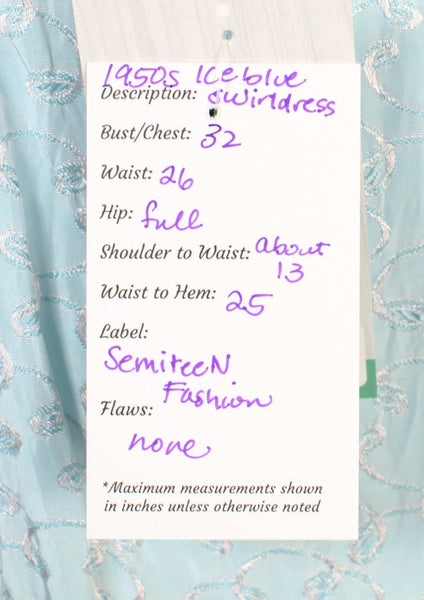 1950s Ice blue
Description: swirldress
Bust/Chest: 32
Waist: 26
Hip: full
Shoulder to Waist: about
13
Waist to Hem: 25
Label:
SemiteeN
Fashion
Flaws:
none
*Maximum measurements shown
in inches unless otherwise noted